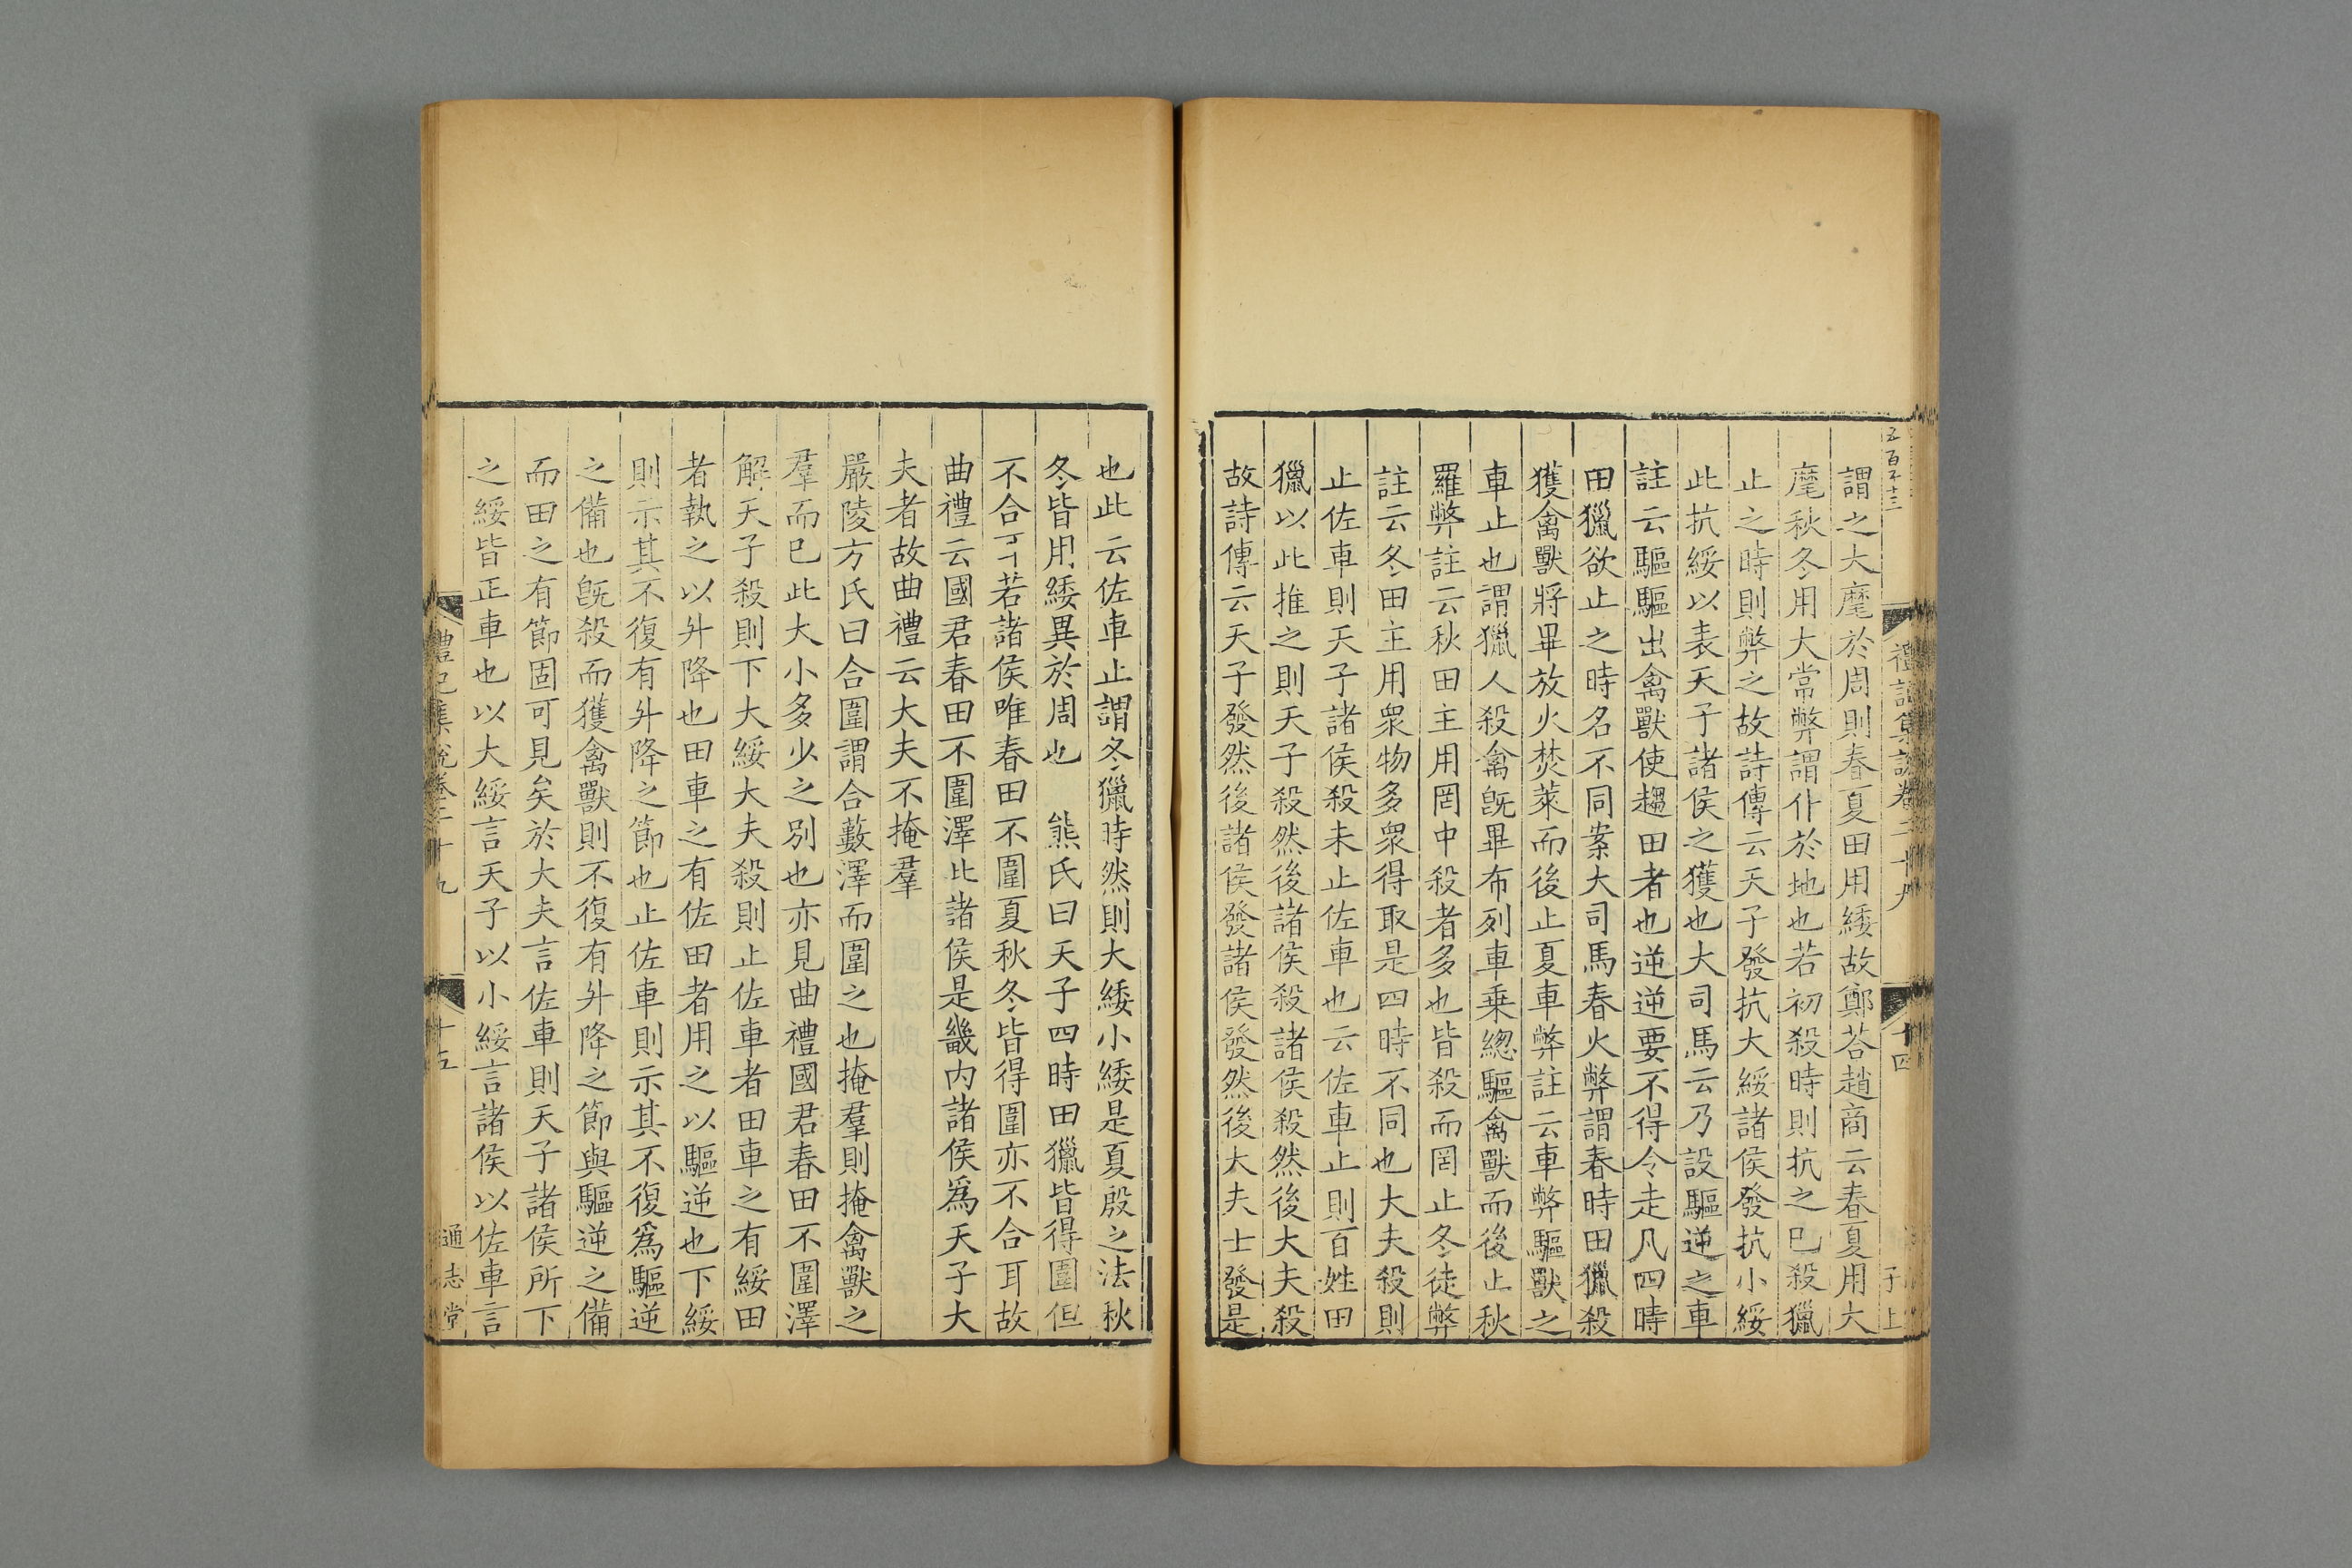 禮記集說卷二十九
十四
謂之大麾於周則春夏田用緌故鄭荅趙商云春夏用大
麾秋冬用大常弊謂仆於地也若初殺時則抗之已殺獵
止之時則弊之故詩傳云天子發抗大綏諸侯發抗小綏
此抗綏以表天子諸侯之獲也大司馬云乃設驅逆之車
註云驅驅出禽獸使趨田者也逆逆要不得令走凡四時
田獵欲止之時名不同案大司馬春火弊謂春時田獵殺
獲禽獸將畢放火焚萊而後止夏車弊註云車弊驅獸之
車止也謂獵人殺禽旣畢布列車乘緫驅禽獸而後止秋
羅弊註云秋田主用罔中殺者多也皆殺而罔止冬徒弊
註云冬田主用衆物多衆得取是四時不同也大夫殺則
止佐車則天子諸侯殺未止佐車也云佐車止則百姓田
獵以此推之則天子殺然後諸侯殺諸侯殺然後大夫殺
故詩傳云天子發然後諸侯發諸侯發然後大夫士發是
也此云佐車止謂冬獵時然則大緌小緌是夏殷之法秋
冬皆用緌異於周也　熊氏曰天子四時田獵皆得圍但
不合耳若諸侯唯春田不圍夏秋冬皆得圍亦不合耳故
曲禮云國君春田不圍澤此諸侯是畿内諸侯爲天子大
夫者故曲禮云大夫不掩羣
嚴陵方氏曰合圍謂合藪澤而圍之也掩羣則掩禽獸之
羣而已此大小多少之别也亦見曲禮國君春田不圍澤
解天子殺則下大綏大夫殺則止佐車者田車之有綏田
者執之以升降也田車之有佐田者用之以驅逆也下綏
則示其不復有升降之節也止佐車則示其不復爲驅逆
之備也旣殺而獲禽獸則不復有升降之節與驅逆之備
而田之有節固可見矣於大夫言佐車則天子諸侯所下
之綏皆正車也以大綏言天子以小綏言諸侯以佐車言
禮記集說卷二十九
十五
通志堂